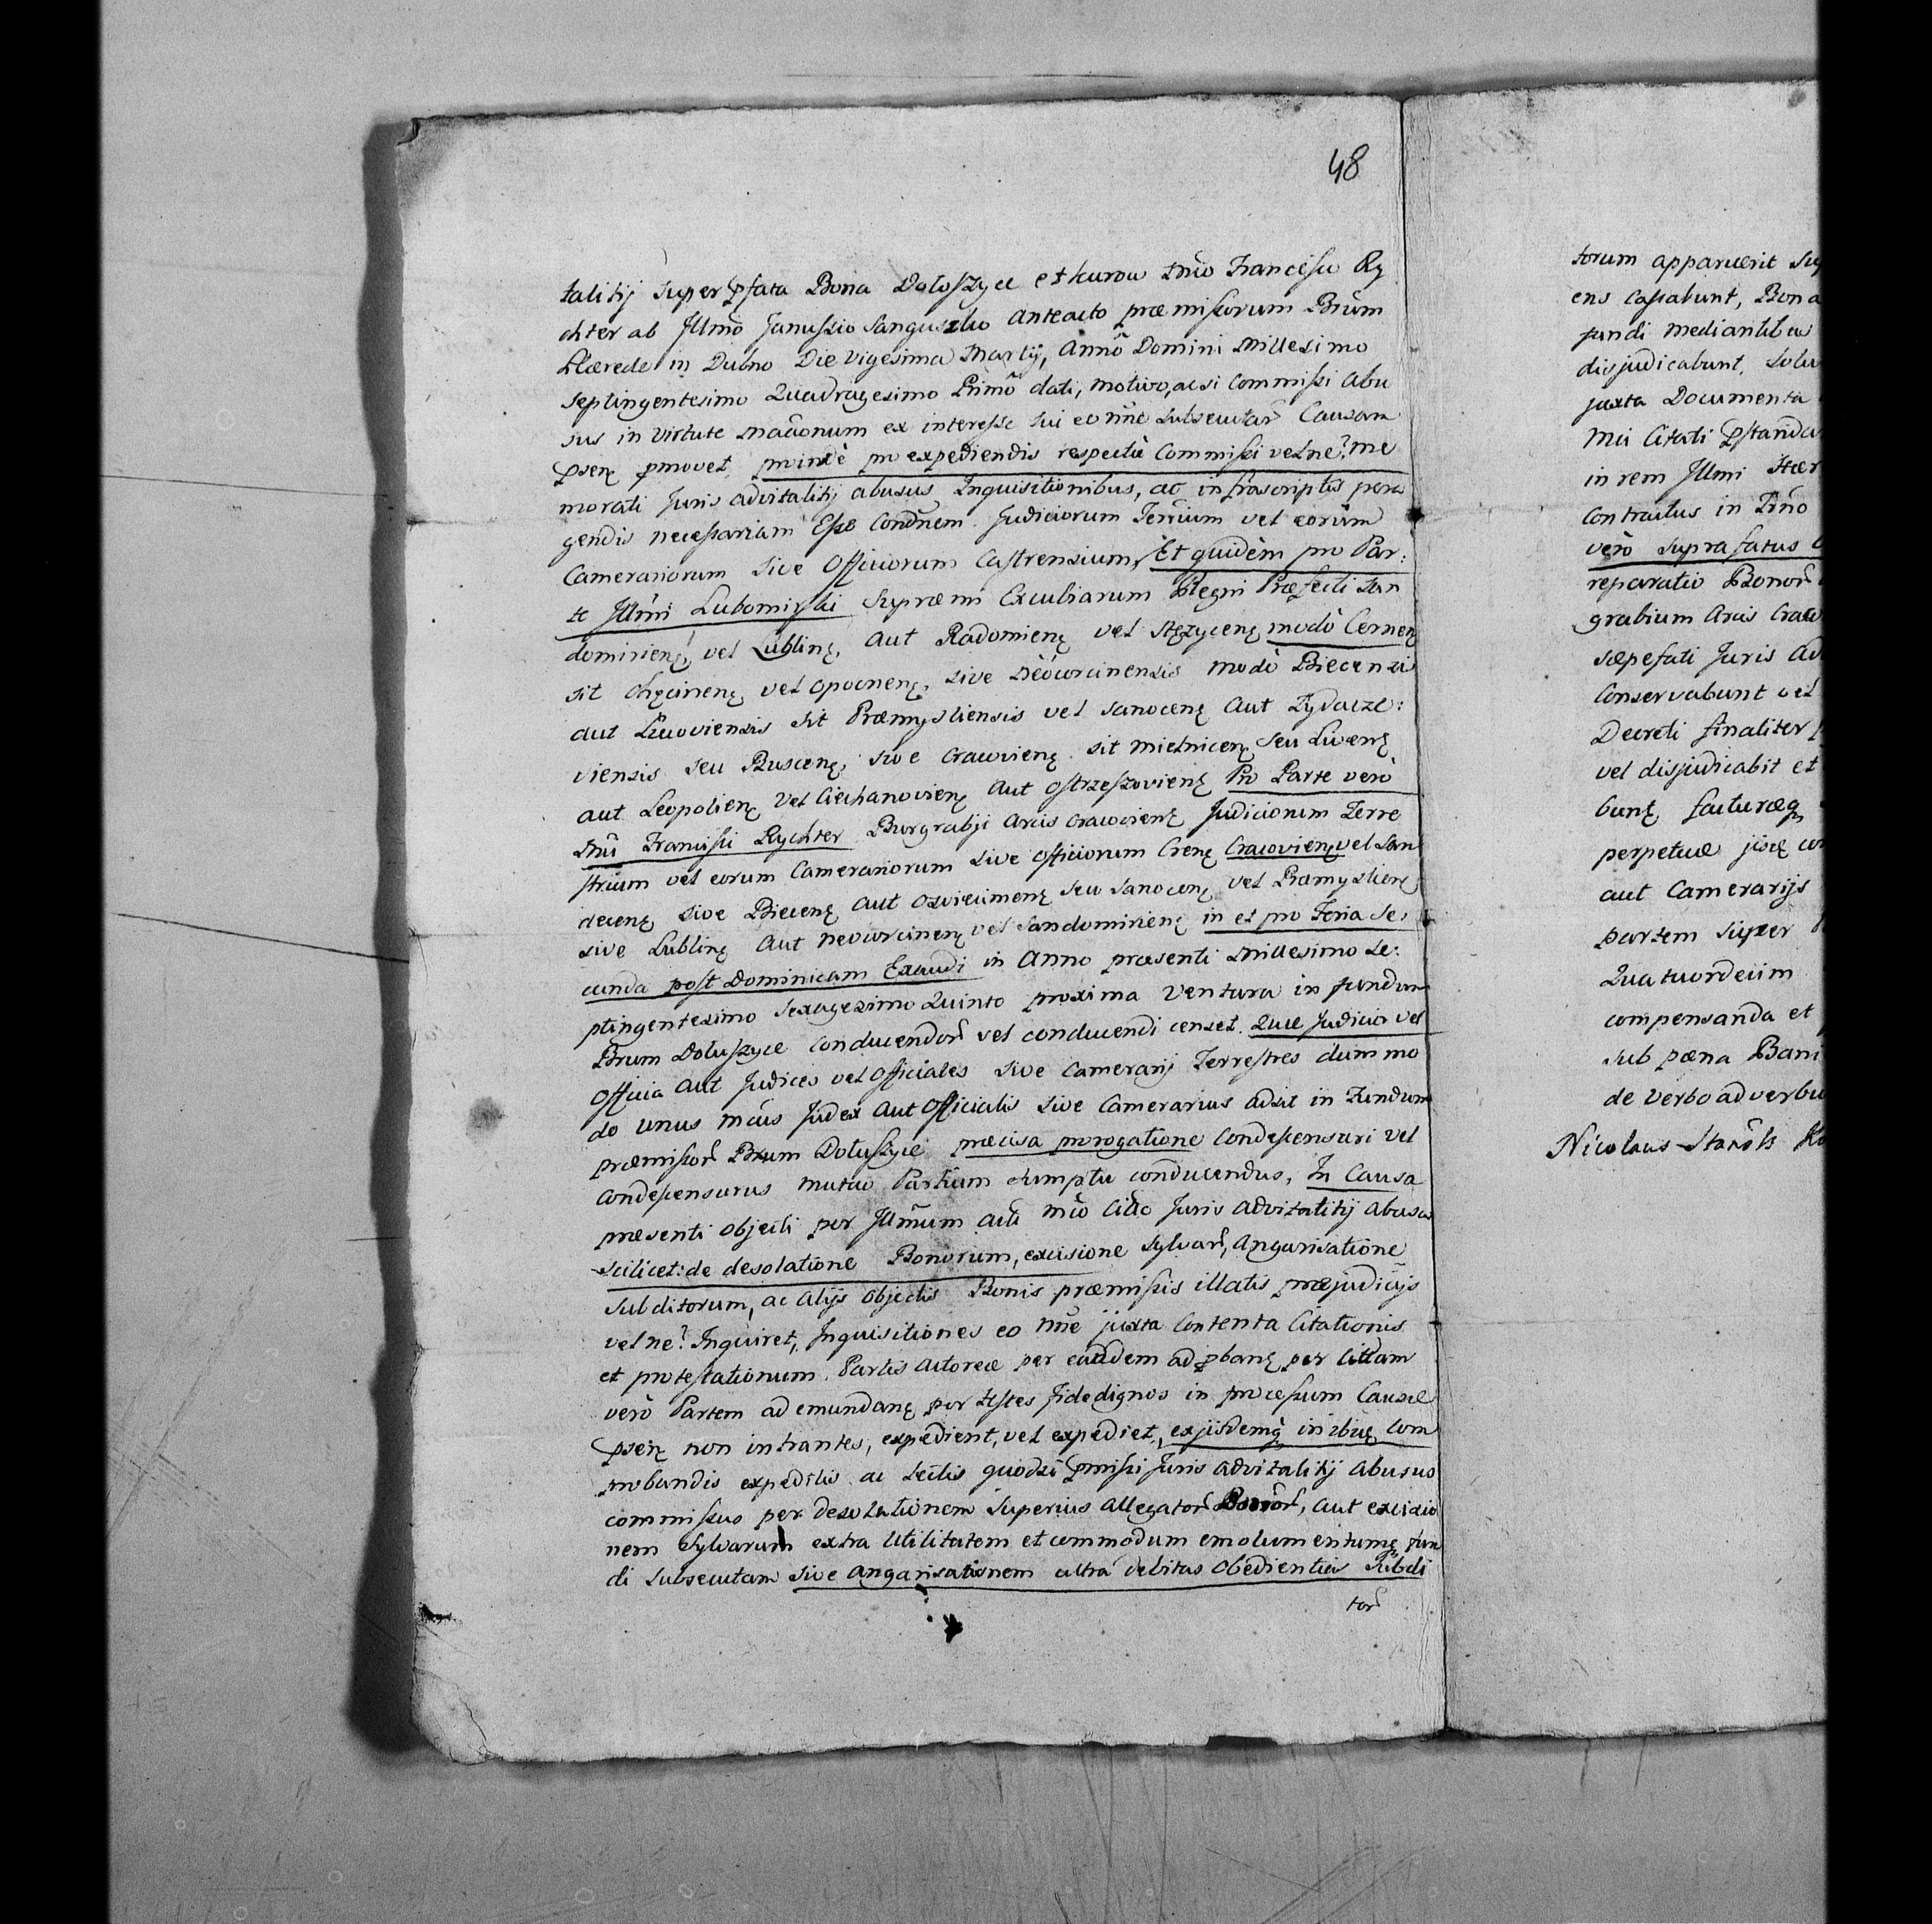 48
talitij super pfata Bona Doluszyce et Kurow Mco Francisco Ry
chter ab Illmo Januszio Sanguszko anteacto præmissorum Bnum
Hærede in Dubno Die Vigesima Martij, Anno Domini Millesimo
Septingentesimo Quadragesimo Primo dati, motivo, ac si commissi abu
sus in virtute maonum ex interesse sui eo nne subsecutar Causam
psenę pmovet, proinde pro expediendis respectu commissi vel ne? me
morati Juris advitalitij abusus Inquisitionibus, ac infrascriptis pera
gendis necessariam Esse Condnem. Judiciorum Terrium vel eorum
Camerariorum sive Officiorum Castrensium, Et quidem pro Par:
te Illmi Lubomirski Supræmi Excubiarum Regni Præfecti San
domirienę, vel Lublinę, aut Radomienę vel Stęzycenę modo Cernen
sit Chęcinenę, vel opocnenę, sive Neocorcinensis modo Biecensi
aut Lucoviensis sit Præmysliensis vel Sanocenę aut Zydacze:
viensis seu Buscenę, sive Cracovienę sit Mielnicenę seu Livenę
aut Leopolienę vel Ciechanovienę aut Ostrzeszovienę Pro Parte vero
Mci Francisci Rychter Burgrabij Arcis Cracovienę Judiciorum Terre
strium vel eorum Camerariorum sive Officiorum Crenę Cracovienę vel San
decenę sive Biecenę aut Osviecimenę seu Sanocenę vel Præmyslienę
sive Lublinę aut Neocorcinenę vel Sandomirienę in et pro Feria Se:
cunda post Dominicam Exaudi in Anno præsenti Millesimo Se:
ptingentesimo Sexagesimo Quinto proxima Ventura in fundum
Bnum Doluszyce conducendor vel conducendi censet. Quæ Judicia vel
Officia aut Judices vel Officiales sive Camerarij Terrestres dummo
do unus incus Judex aut Officialis sive Camerarius adsit in Fundum
præmissor Bnum Doluszyce præcisa prorogatione Condescensuri vel
Condescensurus mutuo Partium sumptu conducendus, In Causa
præsenti objecti per Illmum acti Mco Citto Juris advitalitij abusus
scilicet: de desolatione Bonorum, excisione Sylvar, angarisatione
subditorum, ac alijs objectis Bonis præmissis illatis præjudicijs
vel ne? Inquiret, Inquisitiones eo nne juxta Contenta Citationis
et protestationum. Partis actoreæ per eandem ad pbanę per Cittam
vero Partem ad emundanę per testes fidedignos in processum Causæ
psenę non intrantes, expedient, vel expediet, exjisdemq in ibuę com
probandis expeditis ac lectis quodsi pmissi Juris advitalitij abusus
commissus per desolationem superius allegator Bonor, aut excisio
nem Sylvarum extra utilitatem et commodum emolumentumę fun
di subsecutam sive angarisationem ultra debitas obedientias Subdi
tor
torum apparuerit
ens cassabunt, Bona
fundi mediantibus
disjudicabunt, Solu
juxta Documenta
Mci Citati pstanda
in rem Illmi Hær
Contractus in Tino
vero suprafatus
reparatio Bonor
grabium Arcis Crac
sæpefati Juris Ad
Conservabunt vel
Decreti finaliter
vel disjudicabit et
bunę, facturæq
perpetuæ jisę con
aut Camerarijs
partem super
Quatuordecim
compensanda et
sub pæna Bani
de verbo ad verbu
Nicolaus